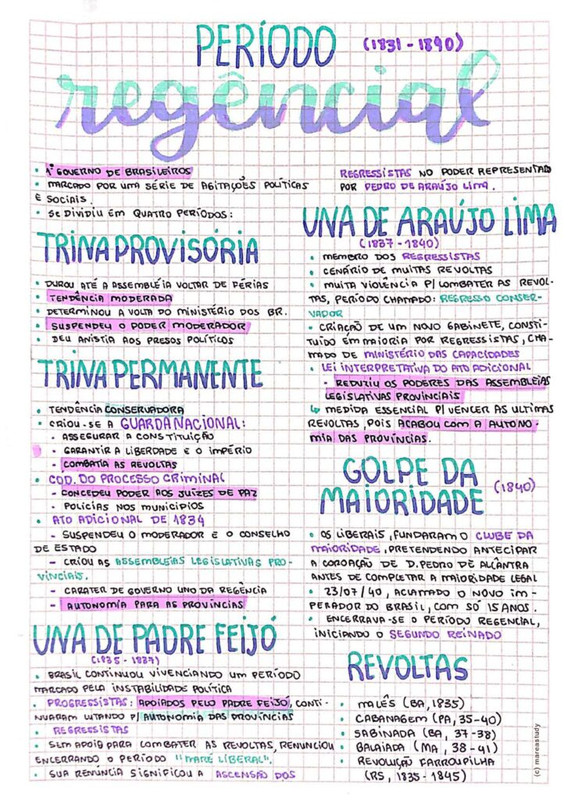 PERÍODO (1831 - 1840)
regêncial
• 1º GOVERNO DE BRASILEIROS
• MARCADO POR UMA SÉRIE DE AGITAÇÕES POLÍTICAS
E SOCIAIS.
• SE DIVIDIU EM QUATRO PERÍODOS:
TRINA PROVISÓRIA
• DUROU ATÉ A ASSEMBLÉIA VOLTAR DE FÉRIAS
• TENDÊNCIA MODERADA
• DETERMINOU A VOLTA DO MINISTÉRIO DOS BR.
• SUSPENDEU O PODER MODERADOR
• DEU ANISTIA AOS PRESOS POLÍTICOS
TRINA PERMANENTE
• TENDÊNCIA CONSERVADORA
• CRIOU-SE A GUARDA NACIONAL:
- ASSEGURAR A CONSTITUIÇÃO
- GARANTIR A LIBERDADE E O IMPÉRIO
- COMBATIA AS REVOLTAS
• COD. DO PROCESSO CRIMINAL
- CONCEDEU PODER AOS JUÍZES DE PAZ
- POLÍCIAS NOS MUNICÍPIOS
• ATO ADICIONAL DE 1834
- SUSPENDEU O MODERADOR E O CONSELHO
DE ESTADO
- CRIOU AS ASSEMBLEIAS LEGISLATIVAS PRO-
VINCIAIS.
- CARATER DE GOVERNO UNO DA REGÊNCIA
- AUTONOMIA PARA AS PROVÍNCIAS
UNA DE PADRE FEIJÓ
(1835 - 1837)
• BRASIL CONTINUOU VIVENCIANDO UM PERÍODO
MARCADO PELA INSTABILIDADE POLÍTICA
• PROGRESSISTAS: APOIADOS PELO PADRE FEIJÓ, CONTI-
NUARAM LUTANDO P/ AUTONOMIA DAS PROVÍNCIAS
• REGRESSISTAS
• SEM APOIO PARA COMBATER AS REVOLTAS, RENUNCIOU
ENCERRANDO O PERÍODO "MARÉ LIBERAL".
• SUA RENÚNCIA SIGNIFICOU A ASCENSÃO DOS
REGRESSISTAS NO PODER REPRESENTADO
POR PEDRO DE ARAÚJO LIMA.
UNA DE ARAÚJO LIMA
(1837 - 1840)
• MEMBRO DOS REGRESSISTAS
• CENÁRIO DE MUITAS REVOLTAS
• MUITA VIOLÊNCIA P/ COMBATER AS REVOL-
TAS, PERÍODO CHAMADO: REGRESSO CONSER-
VADOR
• CRIAÇÃO DE UM NOVO GABINETE, CONSTI-
TUÍDO EM MAIORIA POR REGRESSISTAS, CHA-
MADO DE MINISTÉRIO DAS CAPACIDADES
• LEI INTERPRETATIVA DO ATO ADICIONAL
- REDUZIU OS PODERES DAS ASSEMBLEIAS
LEGISLATIVAS PROVINCIAIS
↳ MEDIDA ESSENCIAL P/ VENCER AS ULTIMAS
REVOLTAS, POIS ACABOU COM A AUTONO-
MIA DAS PROVÍNCIAS.
GOLPE DA
MAIORIDADE (1840)
• OS LIBERAIS, FUNDARAM O CLUBE DA
MAIORIDADE, PRETENDENDO ANTECIPAR
A COROAÇÃO DE D. PEDRO DE ALCÂNTRA
ANTES DE COMPLETAR A MAIORIDADE LEGAL
• 23/07/40, ACLAMADO O NOVO IM-
PERADOR DO BRASIL, COM SÓ 15 ANOS.
• ENCERRAVA-SE O PERÍODO REGENCIAL,
INICIANDO O SEGUNDO REINADO
REVOLTAS
• MALÊS (BA, 1835)
• CABANAGEM (PA, 35-40)
• SABINADA (BA, 37-38)
• BALAIADA (MA, 38-41)
• REVOLUÇÃO FARROUPILHA
(RS, 1835-1845)
(c) mareastudy